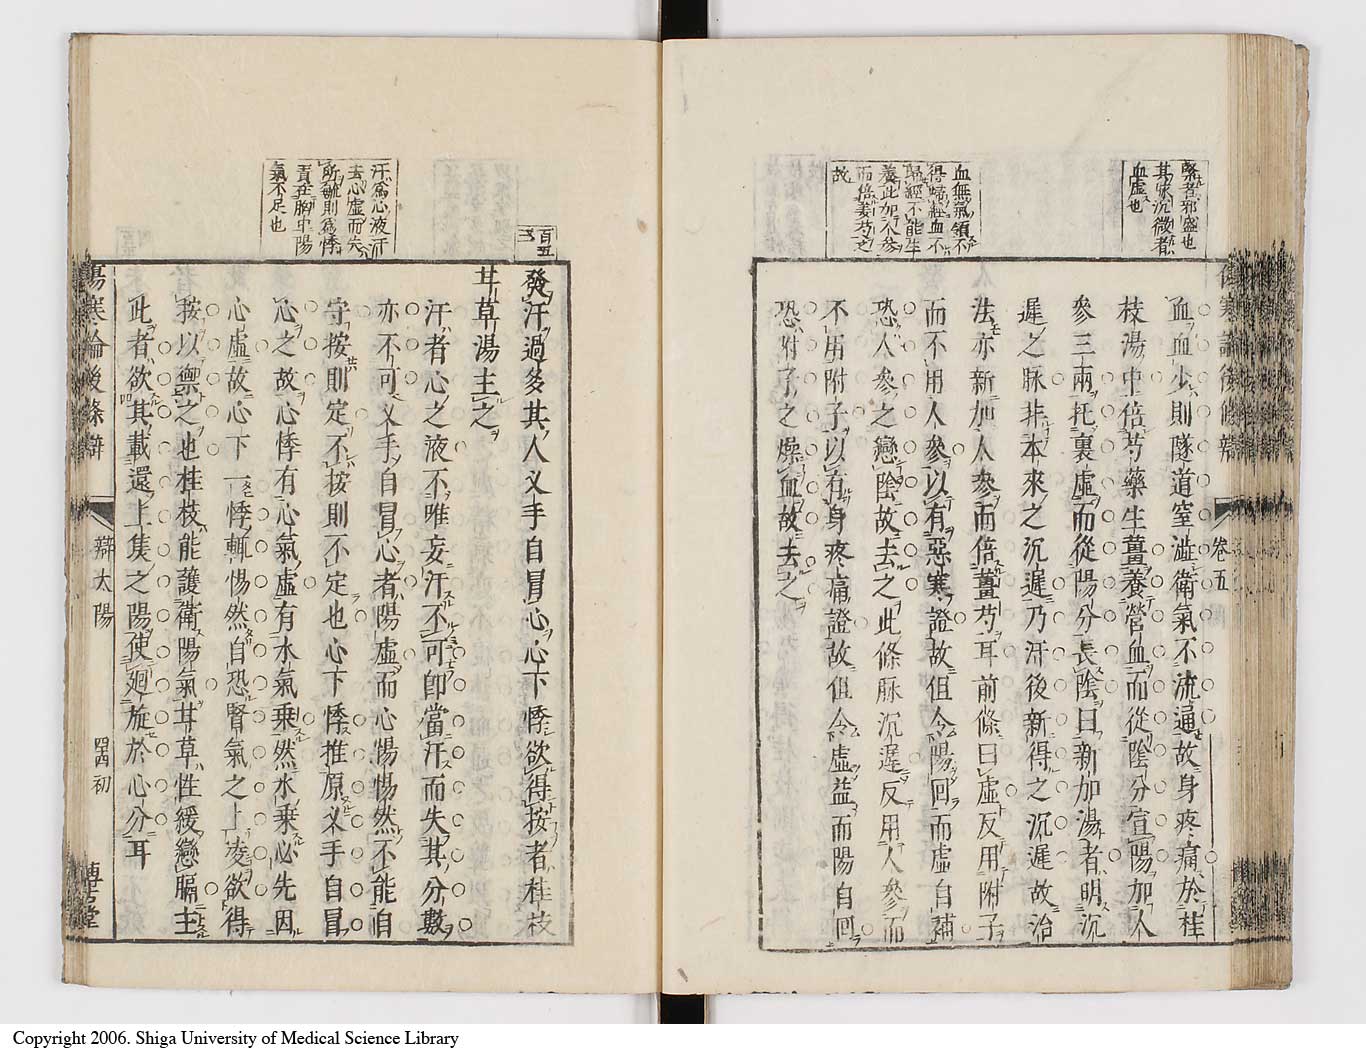 緊者邪盛也
其寔沉微者
血虛也
血無氣領不
得歸經血不
歸經不能生
養此加人參
而倍姜芍之
故
傷寒論後條辨
卷五
血血少則隧道窒澁衛氣不流通故身疼痛於桂
枝湯中倍芍藥生薑養營血而從陰分宣陽加人
參三兩托裏虛而從陽分長陰曰新加湯者明沉
遲之脉非本來之沉遲乃汗後新得之沉遲故治
法亦新加人參而倍薑芍耳前條曰虛反用附子
而不用人參以有惡寒證故但令陽回而虛自補
恐人參之戀陰故去之此條脉沉遲反用人參而
不用附子以有身疼痛證故但令虛益而陽自回
恐附子之燥血故去之
百五
三
汗為心液汗
去心虛而失
所毓則為悸
責在胸中陽
氣不足也
發汗過多其人叉手自冒心心下悸欲得按者桂枝
甘草湯主之
汗者心之液不唯妄汗不可卽當汗而失其分數
亦不可叉手自冒心者陽虛而心惕惕然不能自
守按則定不按則不定也心下悸推原叉手自冒
心之故心悸有心氣虛有水氣乘然水乘必先因
心虛故心下一悸輒惕然自恐腎氣之上凌欲得
按以禦之也桂枝能護衛陽氣甘草性緩戀膈主
此者欲其載還上焦之陽使廻旋於心分耳
傷寒論後條辨
辯太陽
四
初
博古堂
Copyright 2006. Shiga University of Medical Science Library